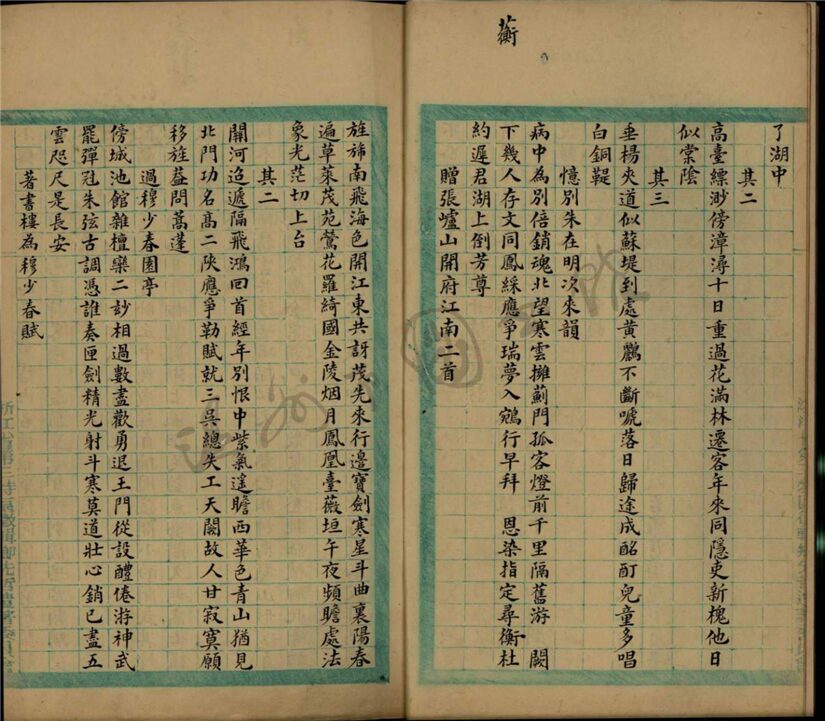 蘅
了湖中
其二
高臺縹渺傍漳潯十日重過花滿林遷客年來同隱吏新槐他日
似棠陰
其三
垂楊夾道似蘇堤到處黃鸝不斷嗁落日歸途成酩酊兒童多唱
白銅鞮
憶別朱在明次來韻
病中為別倍銷魂北望寒雲擁薊門孤客燈前千里隔舊游 闕
下幾人存文同鳳綵應爭瑞夢入鵷行早拜 恩染指定尋衡杜
約遲君湖上倒芳尊
贈張爐山開府江南二首
旌旆南飛海色開江東共訝茂先來行邊寶劍寒星斗曲裏陽春
遍草萊茂苑鶯花羅綺國金陵烟月鳳凰臺薇垣午夜頻瞻處法
象光茫切上台
其二
關河迢遞隔飛鴻回首經年別恨中紫氣遙瞻西華色青山猶見
北門功名高二陝應爭勒賦就三吳總失工天闕故人甘寂寞願
移旌益問蒿蓬
過穆少春園亭
傍城池館雜檀欒二玅相過數盡歡勇退王門從設醴倦游神武
罷彈冠朱弦古調憑誰奏匣劍精光射斗寒莫道壯心銷已盡五
雲咫尺是長安
著書樓為穆少春賦